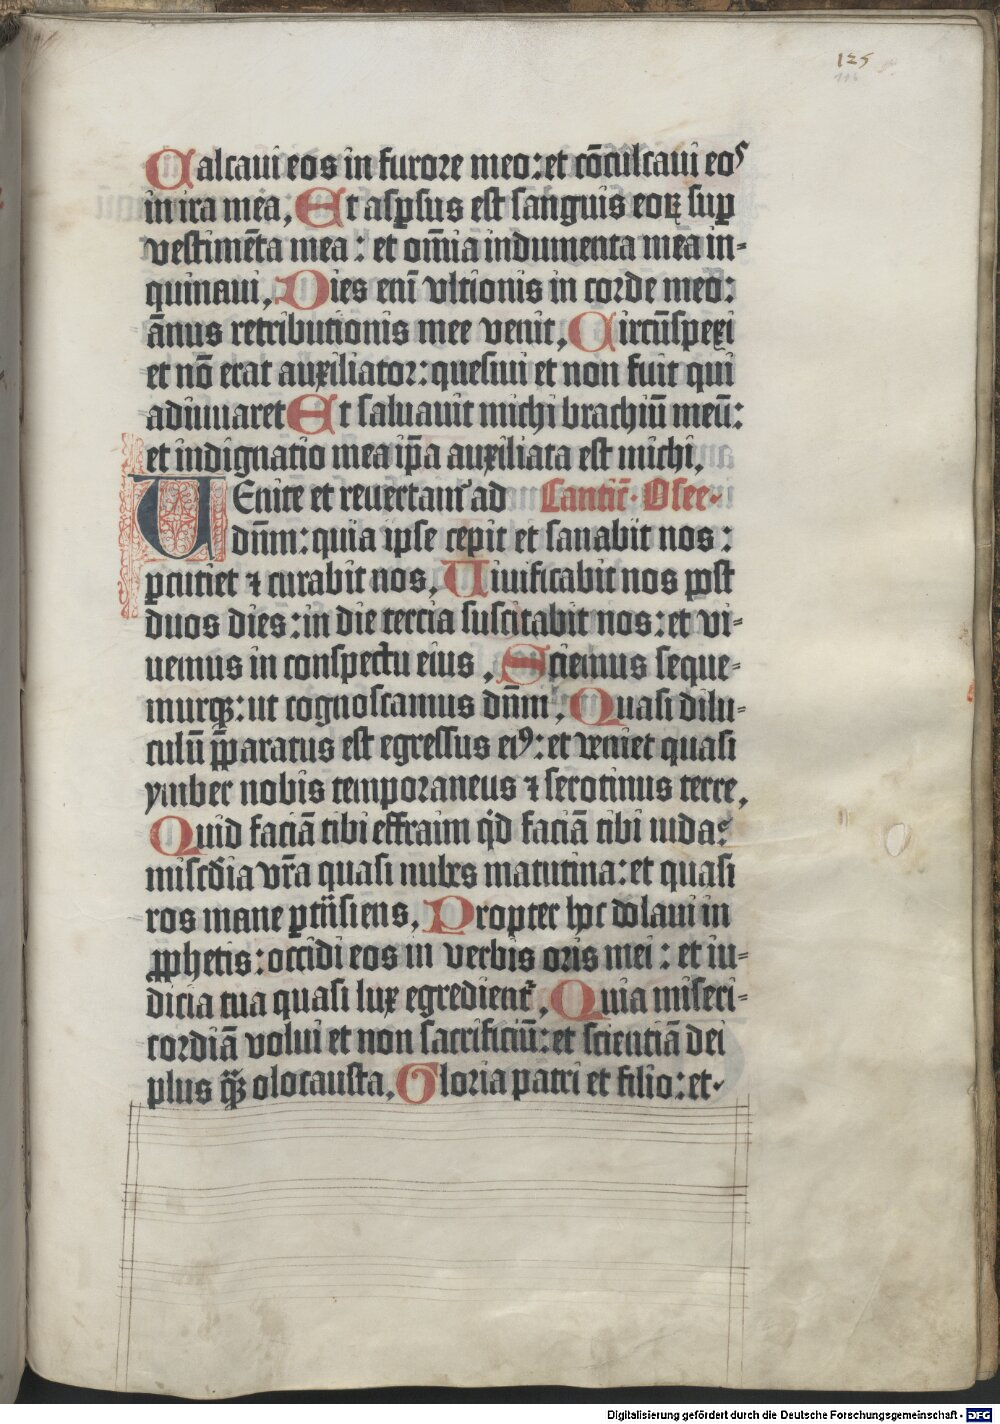 125
116
Calcaui eos in furore meo: et cōculcaui eos
in ira mea, Et aspsus est sanguis eoꝝ sup
vestimēta mea: et om̄ia indumenta mea in-
quinaui, Dies eni vltionis in corde meo:
ānus retributionis mee venit, Circūspexi
et nō erat auxiliator: quesiui et non fuit qui
adiuuaret Et saluauit michi brachiū meū:
et indignatio mea ip̄a auxiliata est michi,
UEnite et reuertamᷣ ad Cantic̄. Osee.
dn̄m: quia ipse cepit et sanabit nos:
ꝑcutiet ⁊ curabit nos, Uiuificabit nos post
duos dies: in die tercia suscitabit nos: et vi-
uemus in conspectu eius, Sciemus seque-
murqꝫ: ut cognoscamus dn̄m, Quasi dilu-
culū p̄paratus est egressus eiꝰ: et veniet quasi
ymber nobis temporaneus ⁊ serotinus terre,
Quid faciā tibi effraim qͥd faciā tibi iuda?
misc̄dia vr̄a quasi nubes matutina: et quasi
ros mane ꝑtn̄siens, Propter hoc dolaui in
ꝓphetis: occidi eos in verbis oris mei: et iu-
dicia tua quasi lux egredientᷣ, Quia miseri-
cordiā volui et non sacrificiū: et scientiā dei
plus qᷓꝫ olocausta, Gloria patri et filio: et.
Digitalisierung gefördert durch die Deutsche Forschungsgemeinschaft - DFG